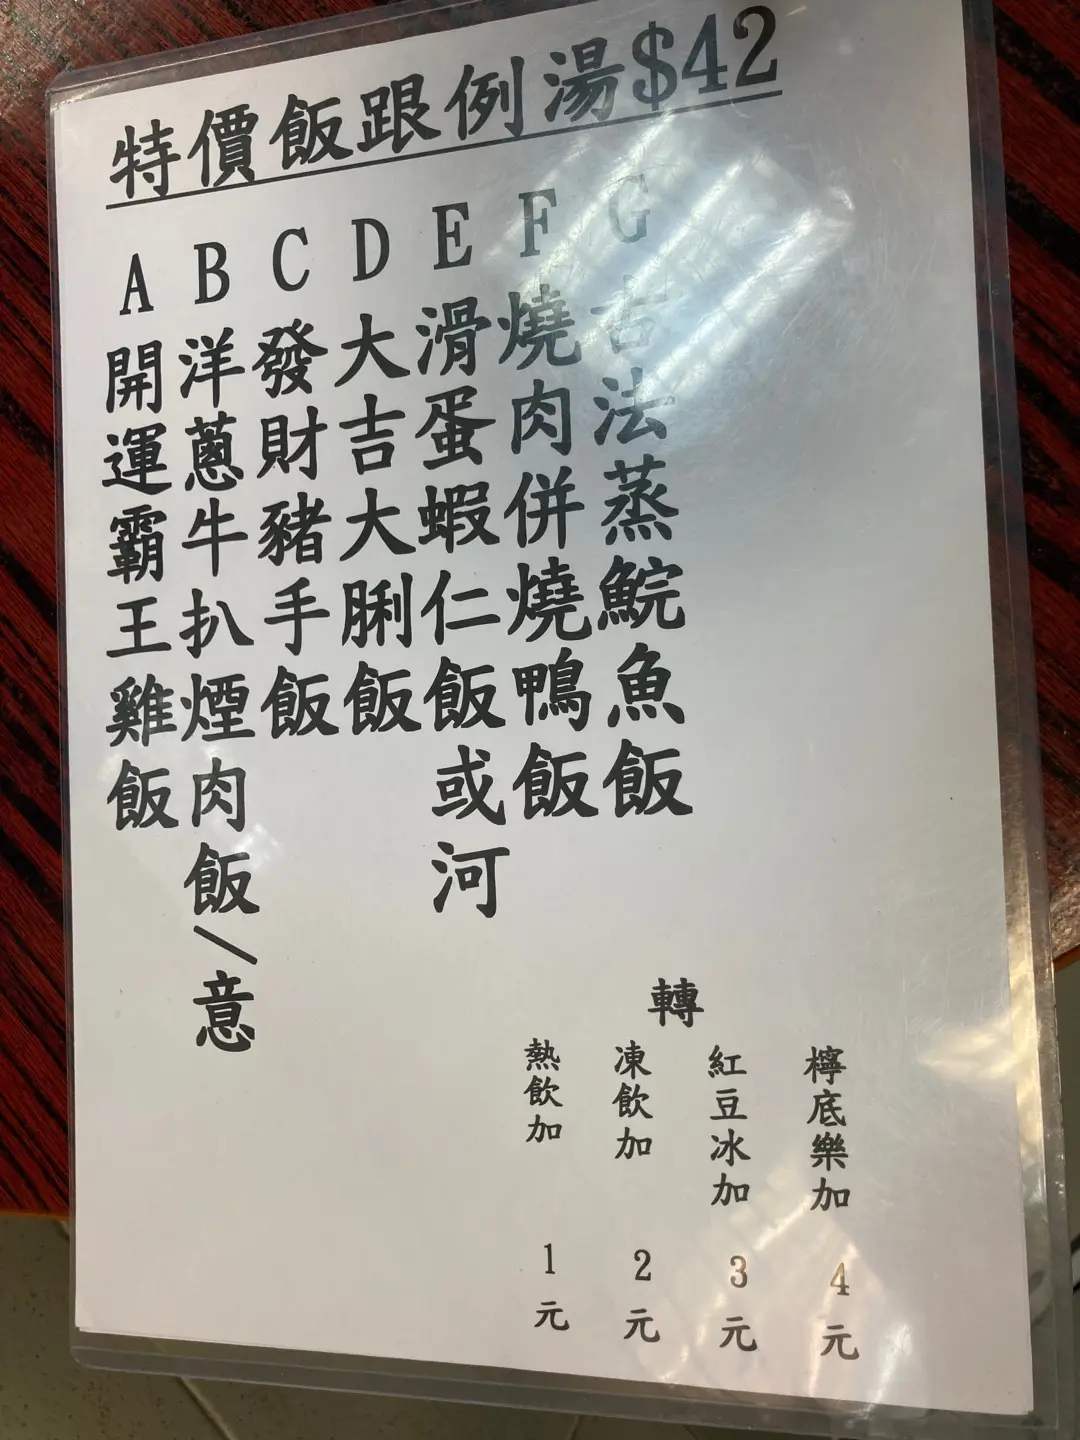 特價飯跟例湯$42
A 開運霸王雞飯
B 洋蔥牛扒煙肉飯/意
C 發財豬手飯
D 大吉大脷飯
E 滑蛋蝦仁飯或河
F 燒肉併燒鴨飯
G 古法蒸鯇魚飯
轉
熱飲加 1元
凍飲加 2元
紅豆冰加 3元
檸底樂加 4元